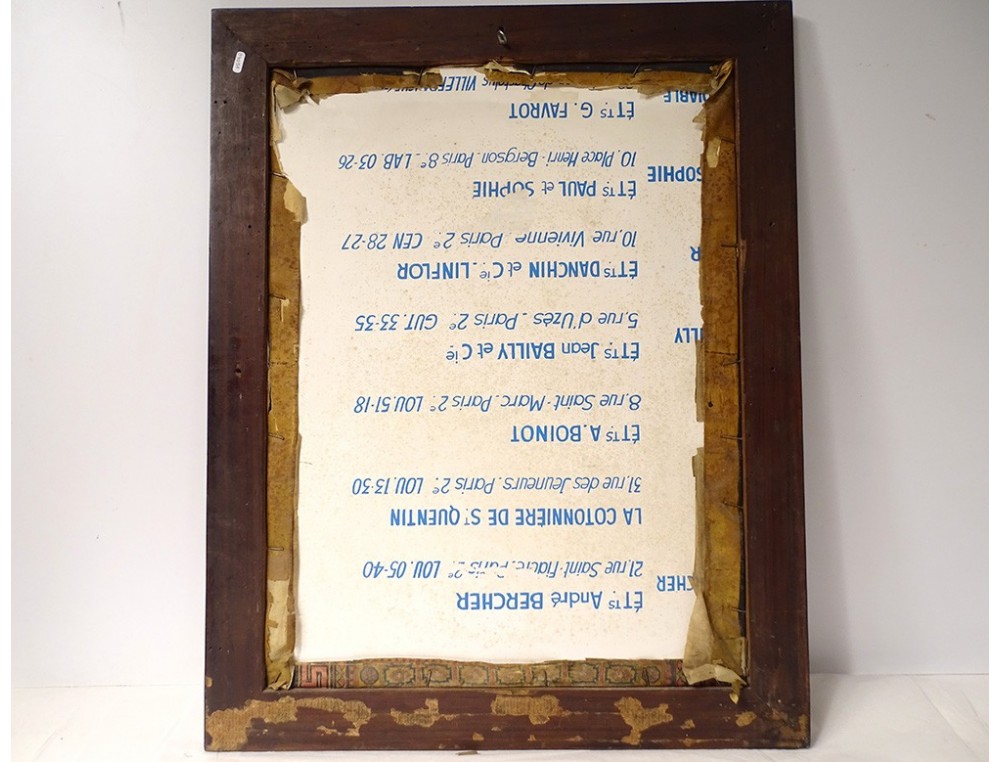 CHER
ÉTTS André BERCHER
21, rue Saint-Fiacre. Paris 2e. LOU. 05-40
LA COTONNIÈRE DE ST QUENTIN
31, rue des Jeuneurs. Paris 2e. LOU. 13-30
ÉTTS A. BOINOT
8, rue Saint-Marc. Paris 2e. LOU. 51-18
LLY
ÉTTS Jean BAILLY et Cie
5, rue d'Uzès. Paris 2e. GUT. 33-35
R
ÉTTS DANCHIN et Cie. LINFLOR
10, rue Vivienne. Paris 2e. CEN 28-27
SOPHIE
ÉTTS PAUL et SOPHIE
10, Place Henri-Bergson. Paris 8e. LAB. 03-26
DIABLE
ÉTTS G. FAVROT